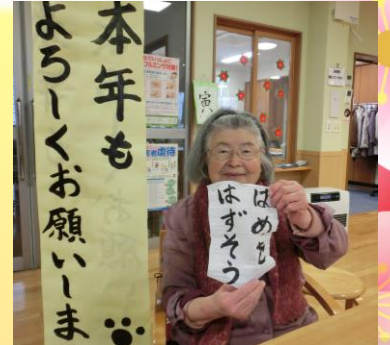 本年も
よろしくお願いしま
寅
はめを
はずそう
虐待